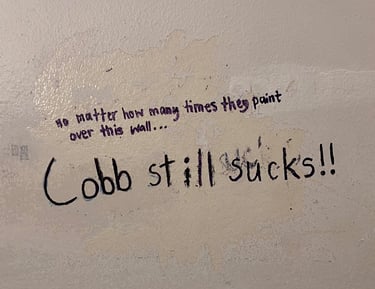 no matter how many times they paint
over this wall...
Cobb still sucks!!